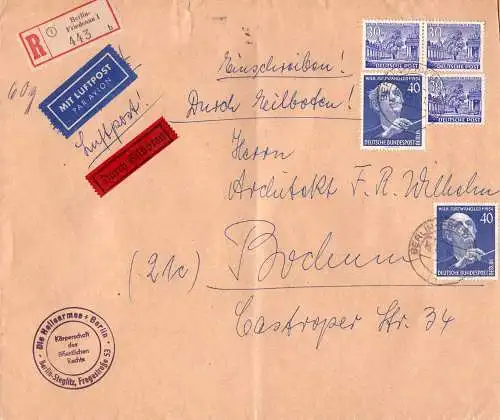 Berlin-
Friedenau 1
R
443 b
60g
MIT LUFTPOST
PAR AVION
Luftpost!
Durch Eilboten!
Einschreiben!
Durch Eilboten!
Herrn
Architekt F. R. Wilhelm
(21c) Bochum
Castroper Str. 34
30 30
DEUTSCHE POST DEUTSCHE POST
WILH. FURTWÄNGLER † 1954
40
DEUTSCHE BUNDESPOST
BERLIN
30
DEUTSCHE POST
WILH. FURTWÄNGLER † 1954
40
DEUTSCHE BUNDESPOST
BERLIN
BERLIN
Die Heilsarmee + Berlin
Körperschaft
des
öffentlichen
Rechts
Berlin-Steglitz, Fregestraße 53